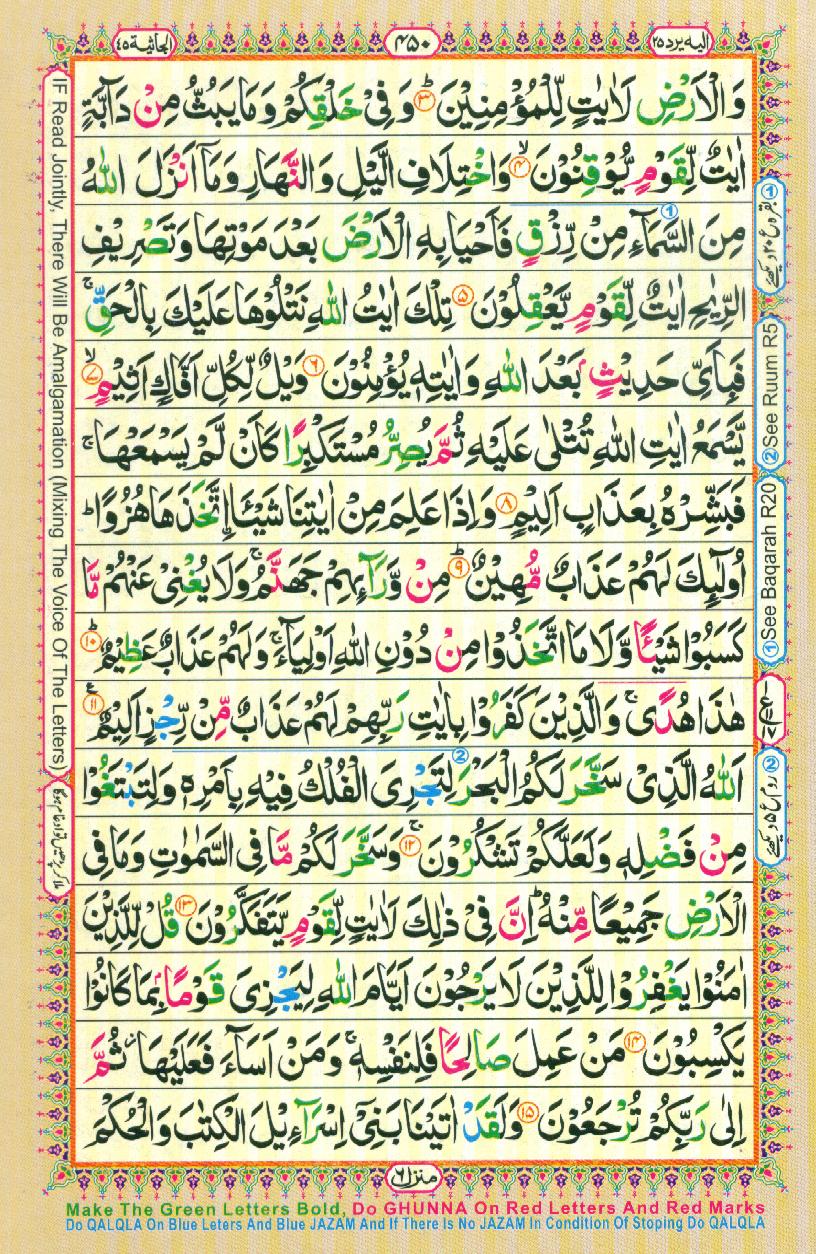 اليه يرد ٢٥
٤٥٠
الجاثية ٤٥
وَالْاَرْضِ لَاٰيٰتٍ لِّلْمُؤْمِنِيْنَ ؕ۳ وَفِيْ خَلْقِكُمْ وَمَا يَبُثُّ مِنْ دَآبَّةٍ
اٰيٰتٌ لِّقَوْمٍ يُّوْقِنُوْنَ ۙ۴ وَاخْتِلَافِ الَّيْلِ وَالنَّهَارِ وَمَآ اَنْزَلَ اللّٰهُ
مِنَ السَّمَآءِ مِنْ رِّزْقٍ فَاَحْيَا بِهِ الْاَرْضَ بَعْدَ مَوْتِهَا وَتَصْرِيْفِ
الرِّيٰحِ اٰيٰتٌ لِّقَوْمٍ يَّعْقِلُوْنَ ۵ تِلْكَ اٰيٰتُ اللّٰهِ نَتْلُوْهَا عَلَيْكَ بِالْحَقِّ ۚ
فَبِاَيِّ حَدِيْثٍۭ بَعْدَ اللّٰهِ وَاٰيٰتِهٖ يُؤْمِنُوْنَ ۶ وَيْلٌ لِّكُلِّ اَفَّاكٍ اَثِيْمٍ ۙ۷
يَّسْمَعُ اٰيٰتِ اللّٰهِ تُتْلٰى عَلَيْهِ ثُمَّ يُصِرُّ مُسْتَكْبِرًا كَاَنْ لَّمْ يَسْمَعْهَا ۚ
فَبَشِّرْهُ بِعَذَابٍ اَلِيْمٍ ۸ وَاِذَا عَلِمَ مِنْ اٰيٰتِنَا شَيْـًٔا اِۨتَّخَذَهَا هُزُوًا ؕ
اُولٰٓئِكَ لَهُمْ عَذَابٌ مُّهِيْنٌ ؕ۹ مِنْ وَّرَآئِهِمْ جَهَنَّمُ ۚ وَلَا يُغْنِيْ عَنْهُمْ مَّا
كَسَبُوْا شَيْـًٔا وَّلَا مَا اتَّخَذُوْا مِنْ دُوْنِ اللّٰهِ اَوْلِيَآءَ ۚ وَلَهُمْ عَذَابٌ عَظِيْمٌ ؕ۱۰
هٰذَا هُدًى ۚ وَالَّذِيْنَ كَفَرُوْا بِاٰيٰتِ رَبِّهِمْ لَهُمْ عَذَابٌ مِّنْ رِّجْزٍ اَلِيْمٌ ۱۱ ع
اَللّٰهُ الَّذِيْ سَخَّرَ لَكُمُ الْبَحْرَ لِتَجْرِيَ الْفُلْكُ فِيْهِ بِاَمْرِهٖ وَلِتَبْتَغُوْا
مِنْ فَضْلِهٖ وَلَعَلَّكُمْ تَشْكُرُوْنَ ۚ۱۲ وَسَخَّرَ لَكُمْ مَّا فِي السَّمٰوٰتِ وَمَا فِي
الْاَرْضِ جَمِيْعًا مِّنْهُ ؕ اِنَّ فِيْ ذٰلِكَ لَاٰيٰتٍ لِّقَوْمٍ يَّتَفَكَّرُوْنَ ۱۳ قُلْ لِّلَّذِيْنَ
اٰمَنُوْا يَغْفِرُوْا لِلَّذِيْنَ لَا يَرْجُوْنَ اَيَّامَ اللّٰهِ لِيَجْزِيَ قَوْمًۢا بِمَا كَانُوْا
يَكْسِبُوْنَ ۱۴ مَنْ عَمِلَ صَالِحًا فَلِنَفْسِهٖ ۚ وَمَنْ اَسَآءَ فَعَلَيْهَا ۫ ثُمَّ
اِلٰى رَبِّكُمْ تُرْجَعُوْنَ ۱۵ وَلَقَدْ اٰتَيْنَا بَنِيْٓ اِسْرَآءِيْلَ الْكِتٰبَ وَالْحُكْمَ
منزل ٦
① بقره ع ۲۰ دیکھئے
② See Ruum R5
① See Baqarah R20
② روم ع ۵ دیکھئے
IF Read Jointly, There Will Be Amalgamation (Mixing The Voice Of The Letters)
Make The Green Letters Bold, Do GHUNNA On Red Letters And Red Marks
Do QALQLA On Blue Leters And Blue JAZAM And If There Is No JAZAM In Condition Of Stoping Do QALQLA